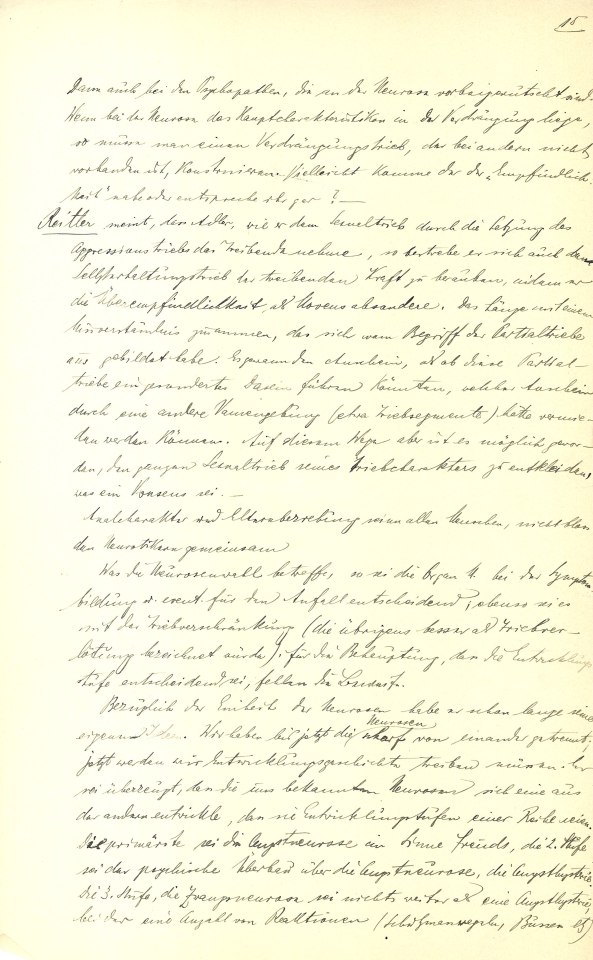 15
Dann auch bei den Psychopathen, die an der Neurose vorbeigerutscht sind.
Wenn bei der Neurose das Hauptcharakteristikon in der Verdrängung liege,
so müsse man einen Verdrängungstrieb, der bei andern nicht
vorhanden ist, konstruieren. Vielleicht komme dar der „Empfindlich-
keit" nahe oder entspreche ihr gar? —
Reitler meint, dass Adler, wie er dem Sexualtrieb durch die Setzung des
Aggressionstriebs das Treibende nehme, so bestrebe er sich auch den
Selbsterhaltungstrieb der treibenden Kraft zu berauben, indem er
die Überempfindlichkeit als Movens absondere. Das hänge mit einem
Missverständnis zusammen, das sich vom Begriff der Partialtriebe
aus gebildet habe. Es gewann den Anschein, als ob diese Partial-
triebe ein gesondertes Dasein führen könnten, welcher Anschein
durch eine andere Namengebung (etwa Triebsegmente) hätte vermie-
den werden können. Auf diesem Wege aber ist es möglich gewor-
den, den ganzen Sexualtrieb seines Triebcharakters zu entkleiden,
was ein Nonsens sei. —
Analcharakter und Übererziehung seien allen Menschen, nicht bloss
den Neurotikern gemeinsam
Was die Neurosenwahl betreffe, so sei die Organ M. bei der Symptom-
bildung u. event für den Anfall entscheidend; ebenso sei es
mit der Triebverschränkung (die übrigens besser als Triebver-
lötung bezeichnet würde). für die Behauptung, dass die Entwicklungs-
stufe entscheidend sei, fehlen die Beweise.
Bezüglich der Einheit der Neurosen habe er schon lange seine
eigenen Ideen. Wir haben bis jetzt die Neurosen scharf von einander getrennt;
jetzt werden wir Entwicklungsgeschichte treiben müssen. Er
sei überzeugt, dass die uns bekannten Neurosen sich eine aus
der andern entwickle, dass sie Entwicklungsstufen einer Reihe seien.
Die primärste sei die Angstneurose im Sinne Freuds, die 2. Stufe
sei der psychische Überbau über die Angstneurose, die Angsthysterie.
Die 3. Stufe, die Zwangsneurose sei nichts weiter als eine Angsthysterie,
bei der eine Anzahl von Reaktionen (Schutzmassregeln, Bussen etc)